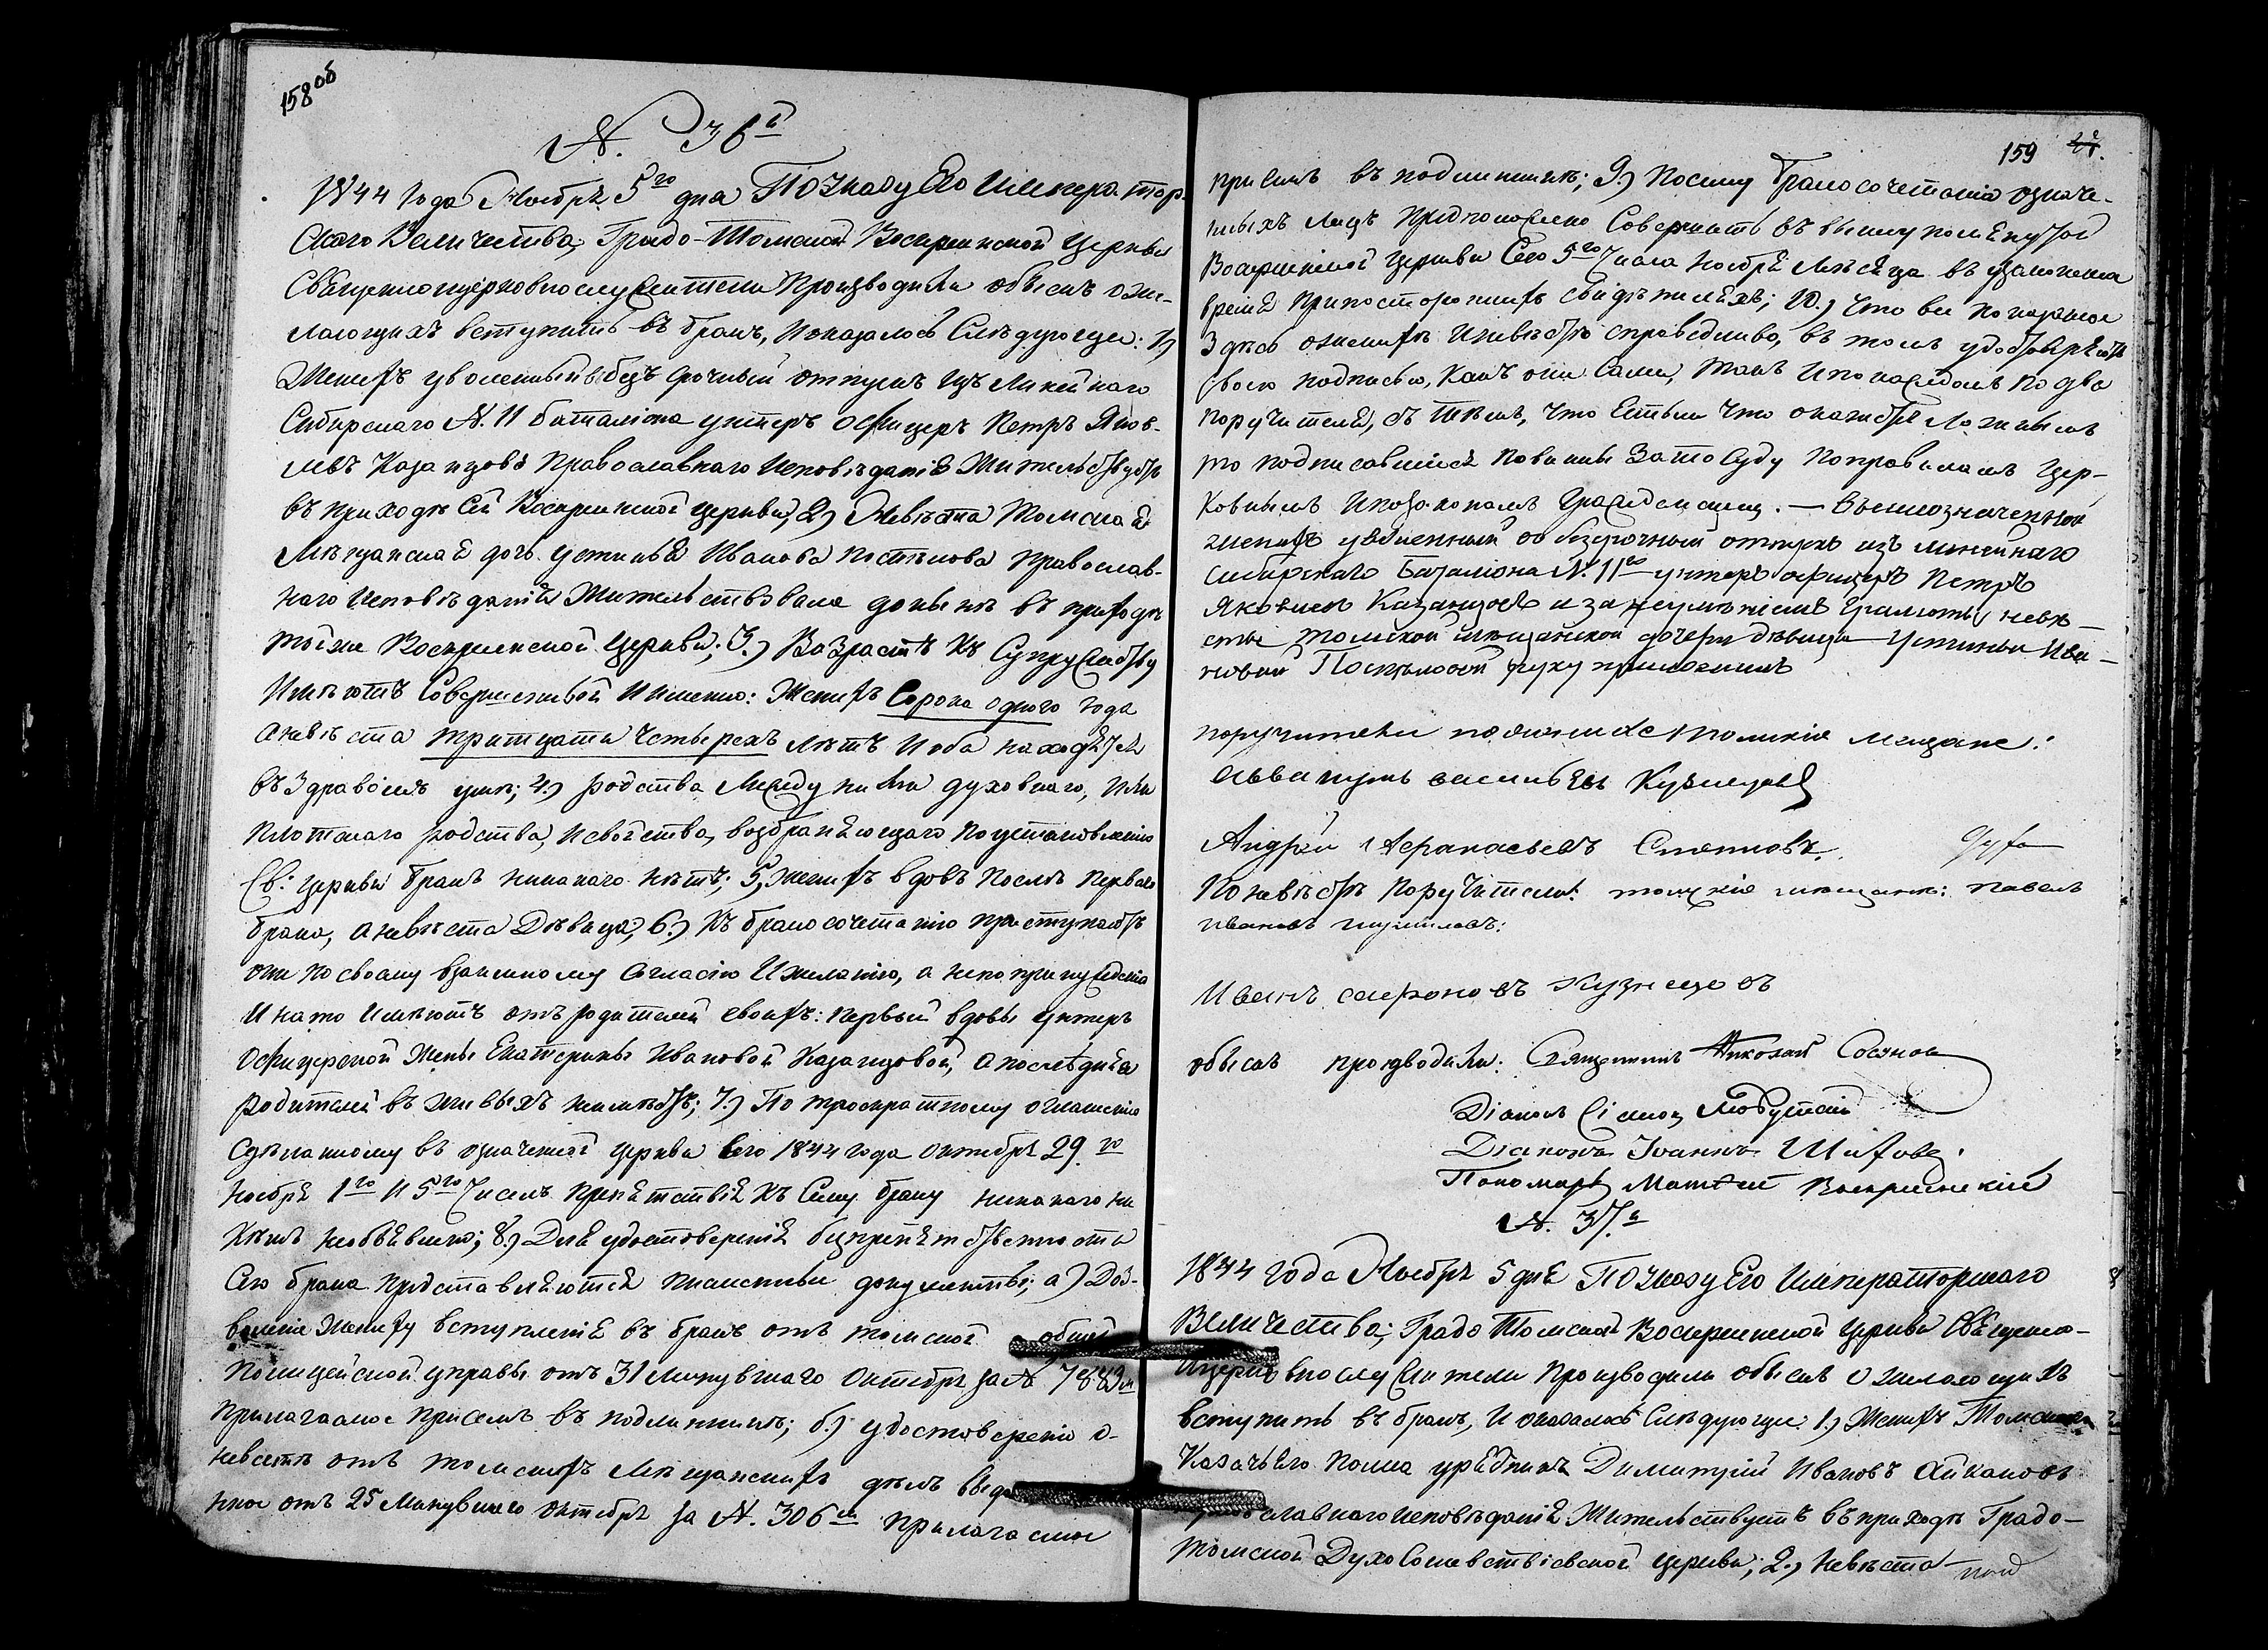 158 об
N. 36й
1844 года Ноября 5го дня По Указу Его Император-
скаго Величества, Градо-Томской Воскресенской Церкви
Священноицерковнослужители Производили обыскъ о же-
лающихъ вступить въ бракъ, и оказалось Следующее: 1,)
Женихъ уволенный въ безъ срочный отпускъ изъ Линейнаго
Сибирскаго N. 11 баталiона унтеръ офицеръ Петръ Яков-
левъ Казанцовъ Православнаго Исповѣданiя Жительствуетъ
въ приходѣ Сей Воскресенской церкви, 2,) Невѣста Томская
Мѣщанская дочь Устинья Иванова Постникова Православ-
наго Исповѣданiя Жительствовала донынѣ въ приходѣ
той же Воскресенской Церкви; 3,) Возрастъ Къ Супружеству
Имѣютъ Совершенный и именно: Женихъ Сорока одного года
а невѣста тритцати четырехъ лѣтъ и оба находятся
въ Здравомъ умѣ; 4,) родства Между ними духовнаго, или
плотскаго родства, и свойства, возбраняющаго по установленiю
Св: Церкви бракъ никакого нѣтъ; 5, Женихъ вдовъ Послѣ перваго
брака, а невѣста Дѣвица; 6,) Къ бракосочетанiю приступаютъ
они по своему взаимному Согласiю и желанiю, а не по принужденiю
И на то имѣютъ отъ родителей своихъ: первый вдовы унтеръ
Офицерской Жены Екатерины Ивановой Казанцовой, а последняя
родителей въ живыхъ неимѣетъ; 7,) По троекратному оглашенiю
сдѣланному въ означенной церкви Сего 1844 года октября 29.го
Ноября 1го и 5го Чиселъ препятствiя Къ Сему браку никакого ни
Кѣмъ необъявлено; 8,) Для удостоверенiя безпрепятственности
Сего брака представляются письменные документы; а) Доз-
воленiе Жениху вступленiя въ бракъ отъ томской общей
Полицейской управы отъ 31 Минувшаго Октября за N 7883м
прилагаемое при семъ въ подлинникѣ; б,) удостоверенiе о
невестѣ отъ томскихъ Мѣщанскихъ дѣлъ
нное отъ 25 Минувшаго Октября за N. 306м прилагаемое
159
при семъ въ подлинникѣ; 9,) Посему бракосочетанiе означе-
нныхъ лицъ предположено Совершить въ вышеупомянутой
Воскресенской Церкви Сего 5го Числа Ноября Мѣсяца въ узаконенное
время при постороннихъ свидѣтеляхъ; 10,) Что все показанное
Здѣсь о женихѣ и невѣстѣ справедливо, въ томъ удостоверяютъ
Своею подписью, Какъ они Сами, такъ и по каждомъ по два
поручителя, съ тѣмъ, что Естьли что окажется Ложнымъ
то подписавшiеся повинны Зато Суду по правиламъ Цер-
ковнымъ и по законамъ Гражданскимъ. — Вышеозначенной
женихъ уволенный въ безсрочный отпускъ изъ линейнаго
сибирскаго Баталiона N. 11го унтеръ офицеръ Петръ
Яковлевъ Казанцовъ и за неумѣнiемъ Грамоты невѣ-
сты томской мѣщанской дочери дѣвицы Устиньи Ива-
новой Постниковой руку приложилъ
поручители по женихѣ томскiя мещане:
василь евъ Кузнецовъ
Андрей Афанасьевъ
По невѣстѣ Поручители: томскiя мещане: павелъ
ивановъ
Иванъ Кузнецовъ
обыскъ производили: Священникъ Николай Сосунов
Дiаконъ
Дiаконъ Iоаннъ
Пономарь Матѳей Воскресенскiй
N. 37.й
1844 года Ноября 5 дня По Указу Его Императорскаго
Величества; Градо Томской Воскресенской Церкви Священно-
ицерковнослужители производили обыскъ о желающихъ
вступить въ бракъ, и оказалось Слѣдующее 1,) Женихъ Томскаго
Казачьяго полка урядникъ Димитрiй Ивановъ Айкановъ
славнаго исповѣданiя Жительствуетъ въ приходѣ Градо-
томской Духо Сошественской церкви; 2,) Невѣста